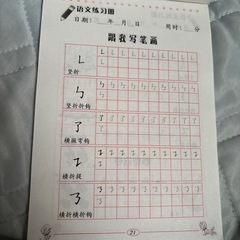 语文练习册
日期: 年 月 日 用时: 分
跟我写笔画
竖折
竖折折钩
横撇弯钩
横折提
21